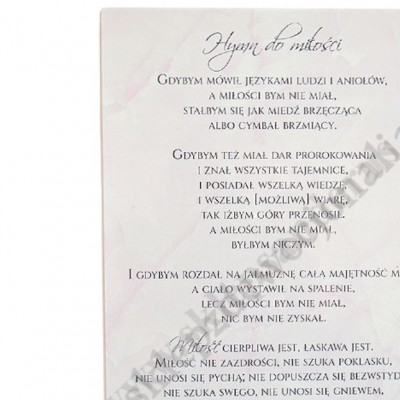 Hymn do miłości
GDYBYM MÓWIŁ JĘZYKAMI LUDZI I ANIOŁÓW,
A MIŁOŚCI BYM NIE MIAŁ,
STAŁBYM SIĘ JAK MIEDŹ BRZĘCZĄCA
ALBO CYMBAŁ BRZMIĄCY.
GDYBYM TEŻ MIAŁ DAR PROROKOWANIA
I ZNAŁ WSZYSTKIE TAJEMNICE,
I POSIADAŁ WSZELKĄ WIEDZĘ,
I WSZELKĄ [MOŻLIWĄ] WIARĘ,
TAK IŻBYM GÓRY PRZENOSIŁ.
A MIŁOŚCI BYM NIE MIAŁ,
BYŁBYM NICZYM.
I GDYBYM ROZDAŁ NA JAŁMUŻNĘ CAŁA MAJĘTNOŚĆ M
A CIAŁO WYSTAWIŁ NA SPALENIE,
LECZ MIŁOŚCI BYM NIE MIAŁ,
NIC BYM NIE ZYSKAŁ.
Miłość CIERPLIWA JEST, ŁASKAWA JEST.
MIŁOŚĆ NIE ZAZDROŚCI, NIE SZUKA POKLASKU,
NIE UNOSI SIĘ PYCHĄ; NIE DOPUSZCZA SIĘ BEZWSTYD
NIE SZUKA SWEGO, NIE UNOSI SIĘ GNIEWEM,